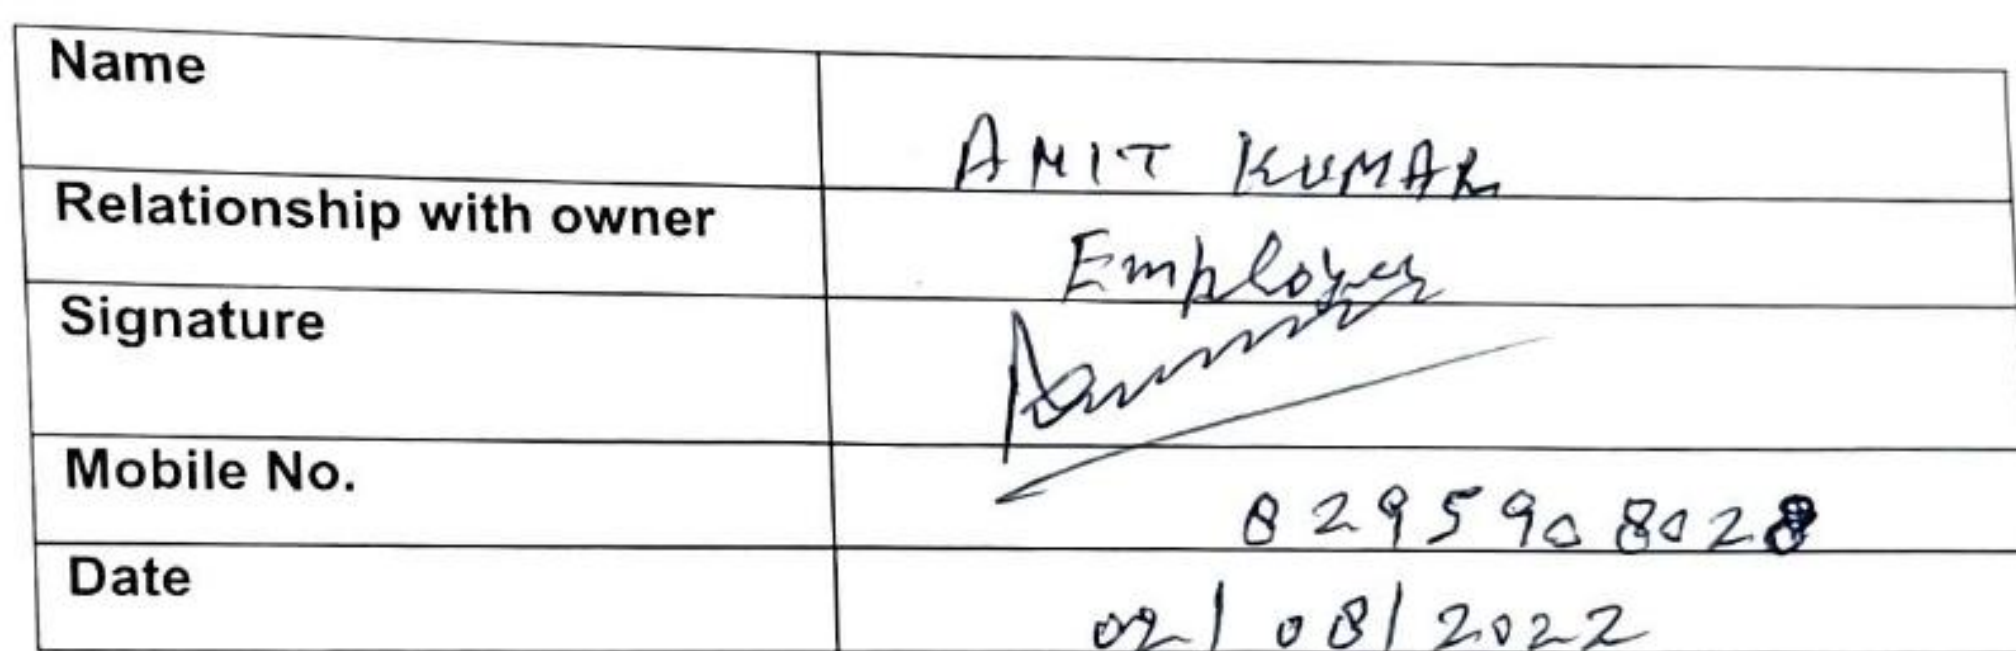 Name AMIT KUMAR
Relationship with owner Employer
Signature
Mobile No. 8295908028
Date 02/08/2022